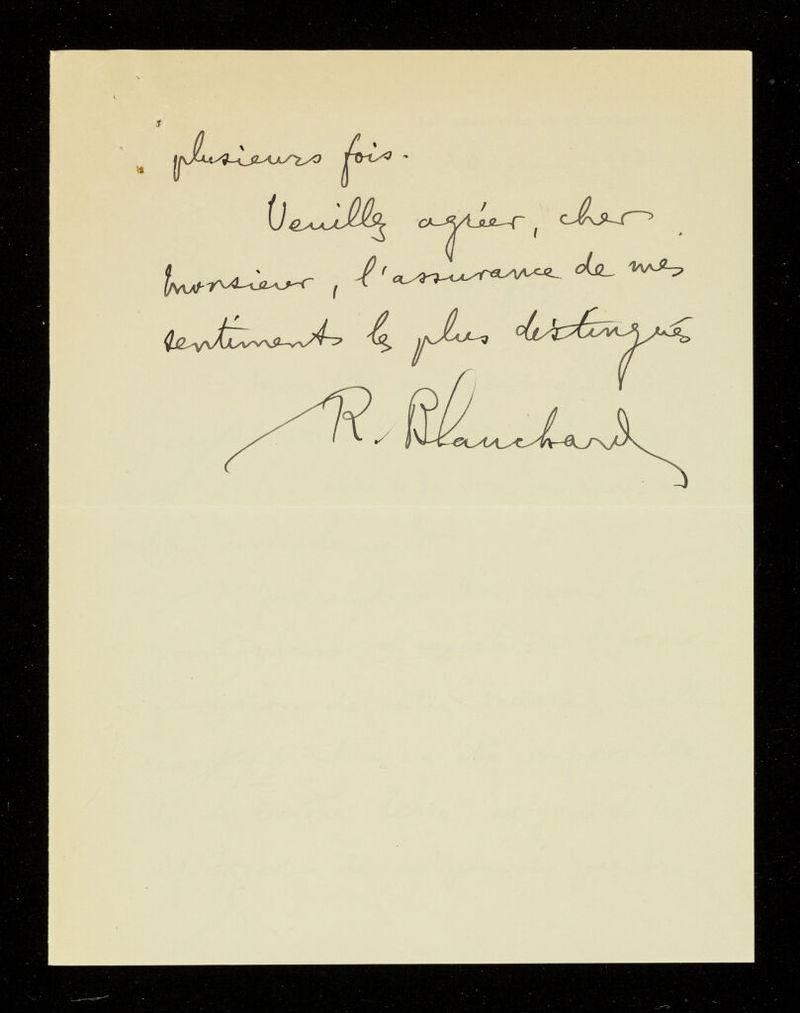 plusieurs fois.
Veuillez agréer, cher
Monsieur, l'assurance de mes
sentiments les plus distingués
R. Blanchard